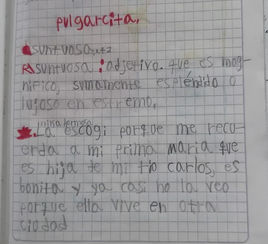 pulgarcita,
suntuosa,
suntuosa: adjetivo. que es mag-
nifico, sumamente espléndido o
lujoso en estremo,
La escogi porque me recu
erda a mi prima maria, que
es hija de mi tio carlos, es
bonita y ya casi no la veo
porque ella vive en otra
ciudad